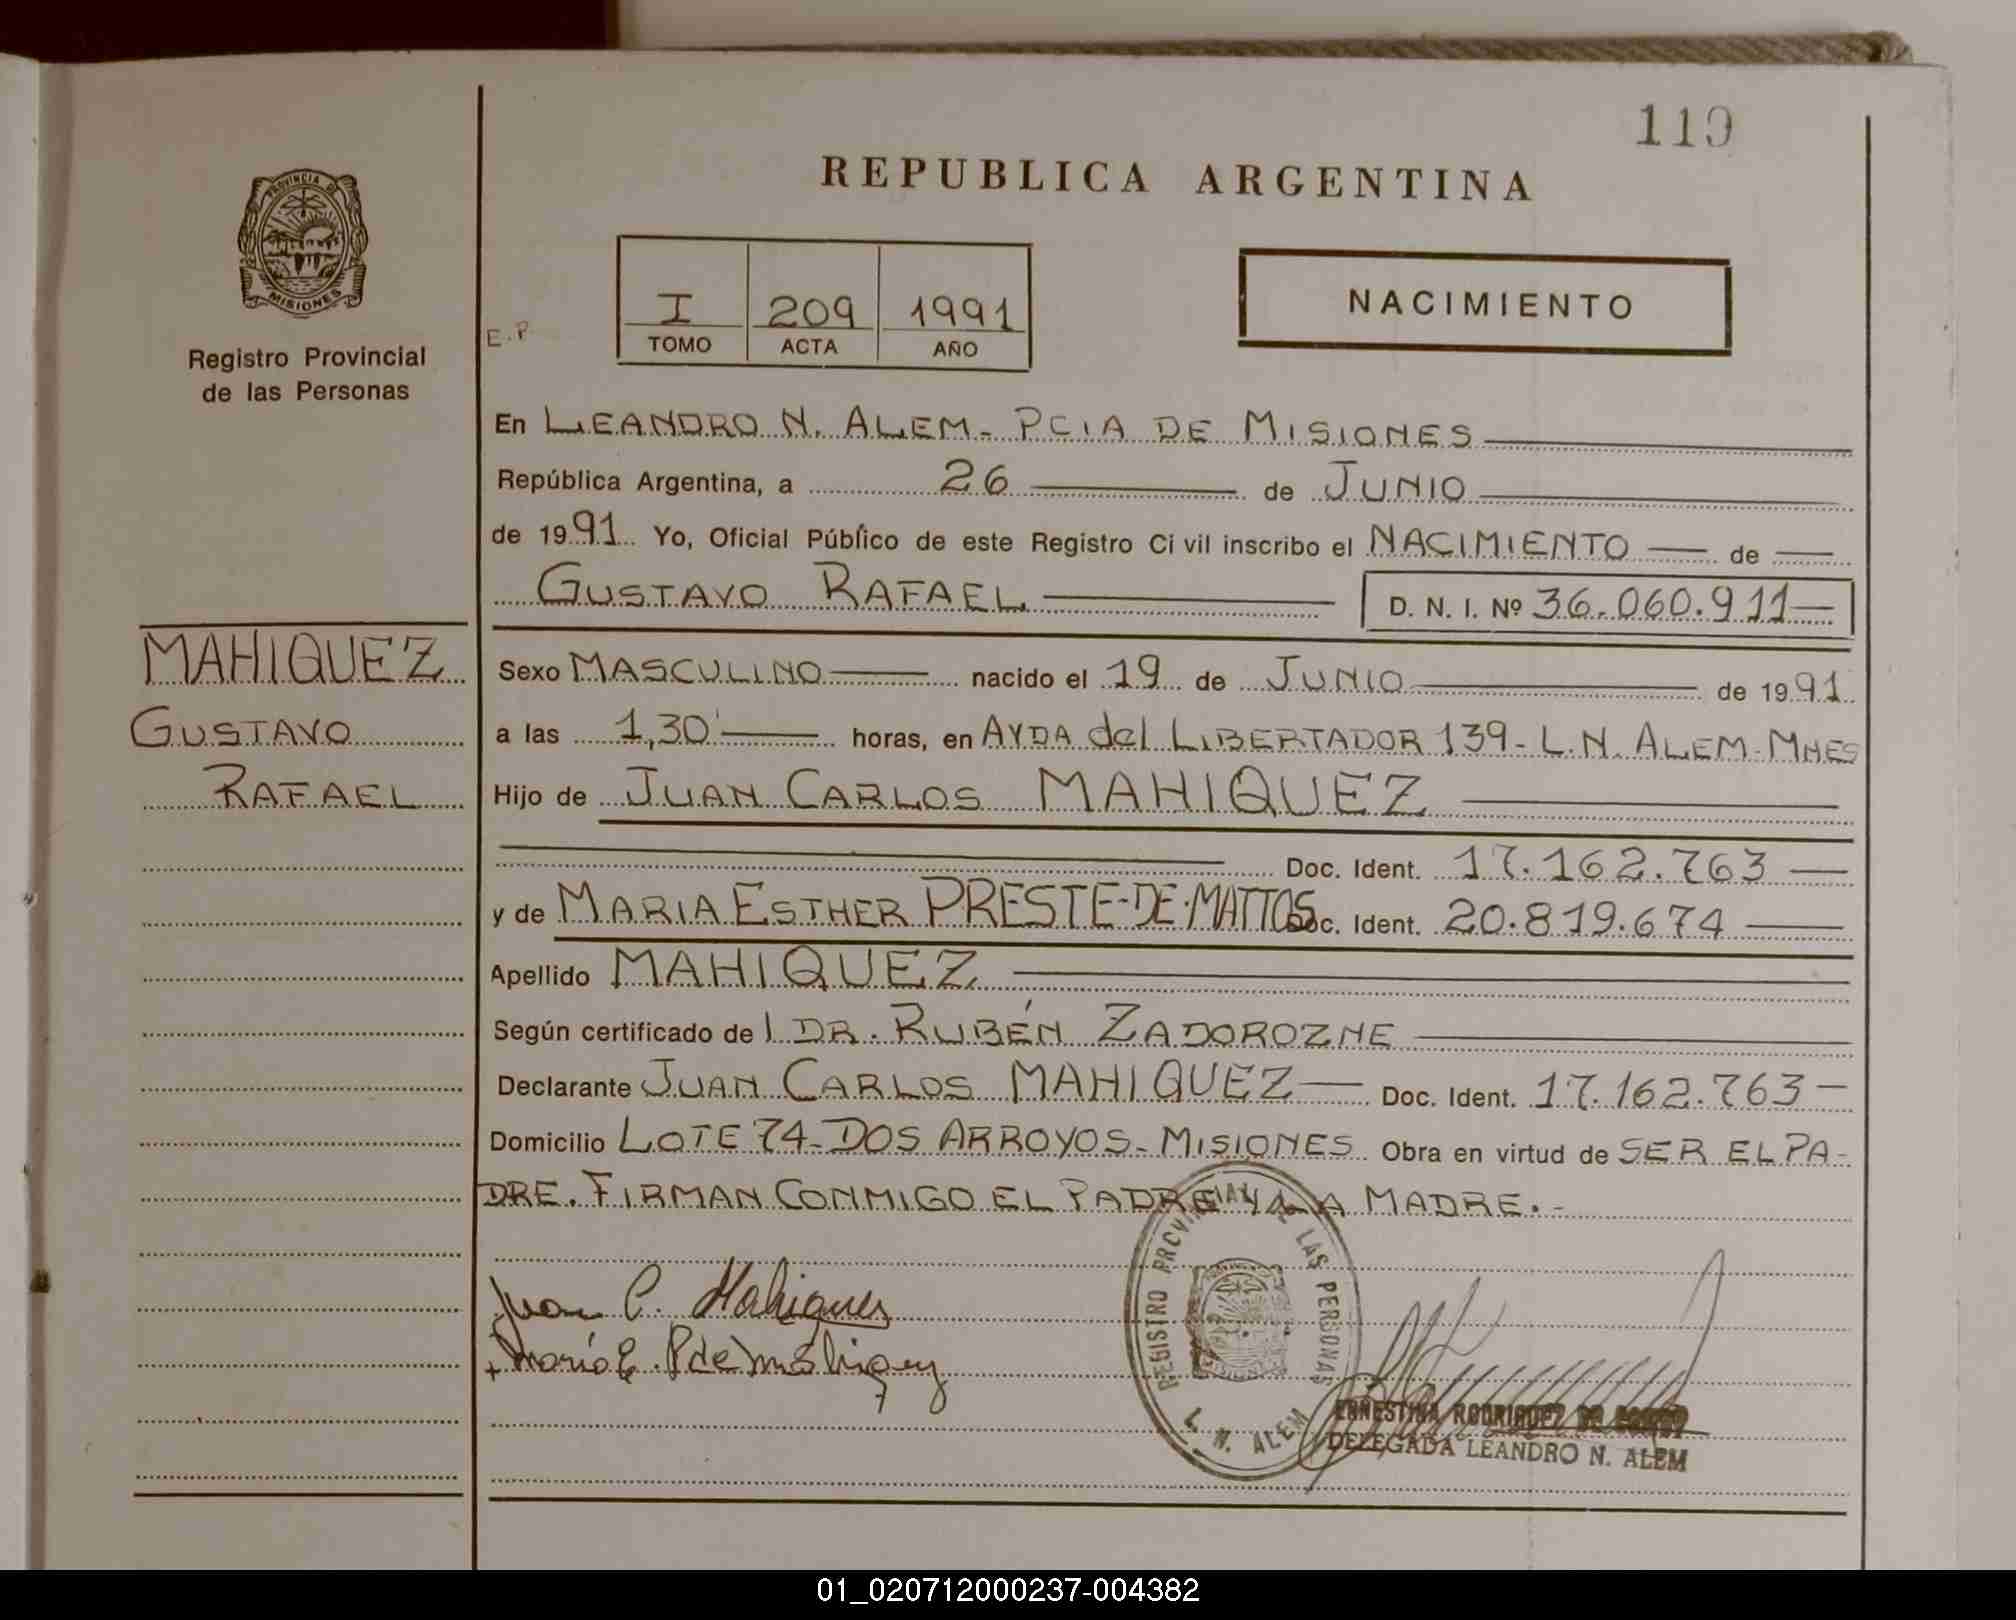 119
REPUBLICA ARGENTINA
PROVINCIA DE
MISIONES
Registro Provincial
de las Personas
E.P
I 209 1991
TOMO ACTA AÑO
NACIMIENTO
En LEANDRO N. ALEM - PCIA DE MISIONES
República Argentina, a 26 de JUNIO
de 1991 Yo, Oficial Público de este Registro Civil inscribo el NACIMIENTO de
GUSTAVO RAFAEL D. N. I. Nº 36.060.911
MAHIQUEZ
GUSTAVO
RAFAEL
Sexo MASCULINO nacido el 19 de JUNIO de 1991
a las 1,30' horas, en AVDA del LIBERTADOR 139 - L.N. ALEM - MNES
Hijo de JUAN CARLOS MAHIQUEZ
Doc. Ident. 17.162.763
y de MARIA ESTHER PRESTE-DE-MATTOS Doc. Ident. 20.819.674
Apellido MAHIQUEZ
Según certificado de l DR. RUBÉN ZADOROZNE
Declarante JUAN CARLOS MAHIQUEZ Doc. Ident. 17.162.763
Domicilio LOTE 74 - DOS ARROYOS - MISIONES Obra en virtud de SER EL PA-
DRE. FIRMAN CONMIGO EL PADRE Y LA MADRE.-
Juan C. Mahiques
María E. P de
REGISTRO PROVINCIAL DE LAS PERSONAS
L. N. ALEM
ERNESTINA RODRIGUEZ DE
DELEGADA LEANDRO N. ALEM
01_020712000237-004382